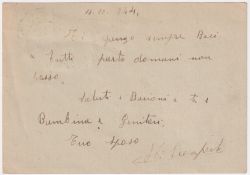 4.11.944.
Ti penso sempre Baci
Tutti parto domani non
lasso.
Saluti e Bacioni a te e
Bambina e Genitori.
Tuo sposo